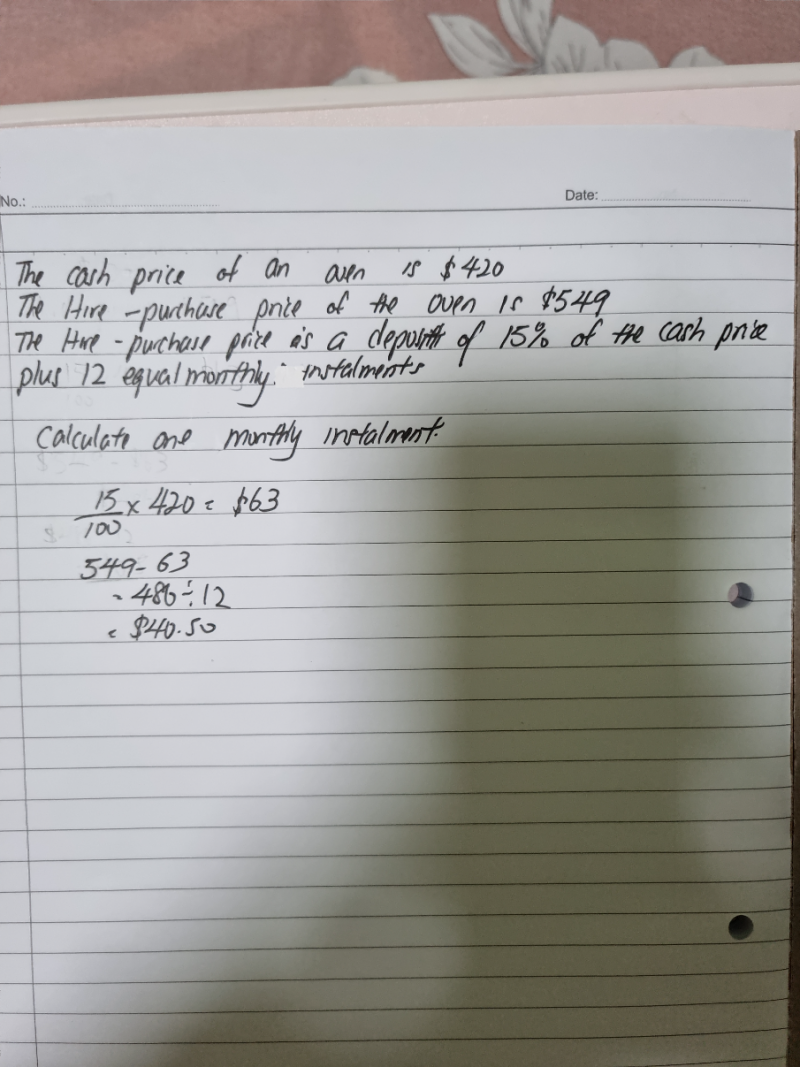 No.:
Date:
The cash price of an oven is $420
The Hire-purchase price of the oven is $549
The Hire-purchase price is a deposit of 15% of the cash price
plus 12 equal monthly instalments
Calculate one monthly instalment.
15/100 × 420 = $63
549-63
= 486÷12
= $40.50